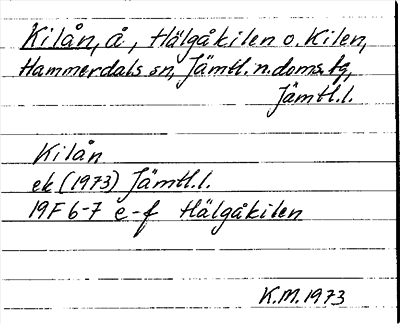 Kilån, å, Hälgåkilen o. Kilen,
Hammerdals sn, Jämtl. n. doms. fg,
Jämtl.l.
Kilån
ek (1973) Jämtl.l.
19F 6-7 e-f Hälgåkilen
K.M. 1973